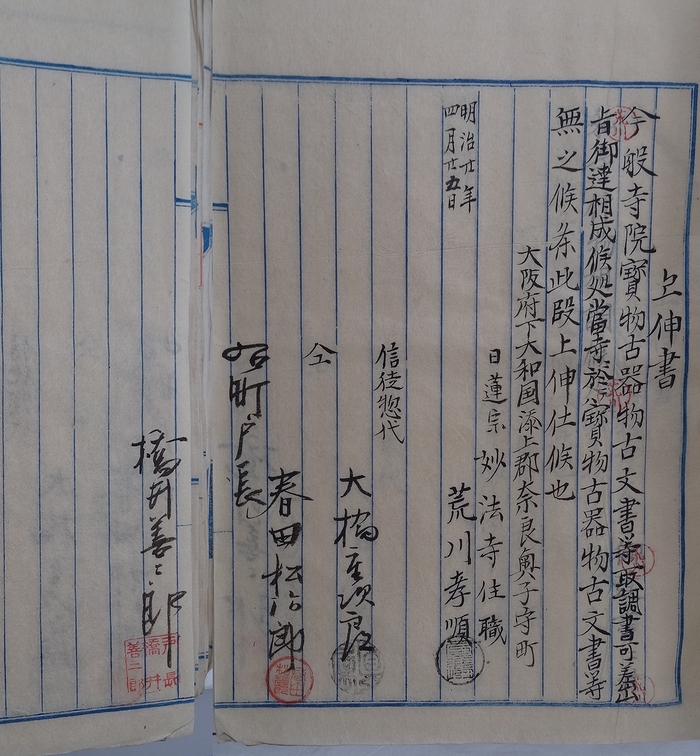 上伸書
今般寺院寳物古器物古文書等取調書可差出
旨御達相成候処當寺於寳物古器物古文書等
無之候条此段上伸仕候也
大阪府下大和国添上郡奈良奥子守町
日蓮宗 妙法寺住職
荒川孝順
明治廿年
四月廿五日
信徒惣代
大橋重次郎
仝
春田松治郎
右町戸長
橋井善二郎
戸長
橋井
善二郎